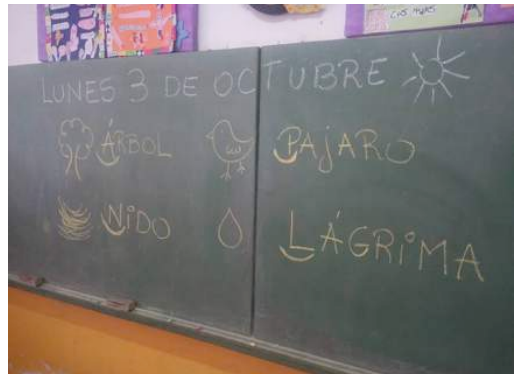 LUNES 3 DE OCTUBRE
ÁRBOL PAjARO
NiDO LÁGRiMA